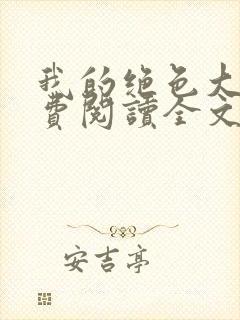 我的绝色大
费阅读全文
安吉亭